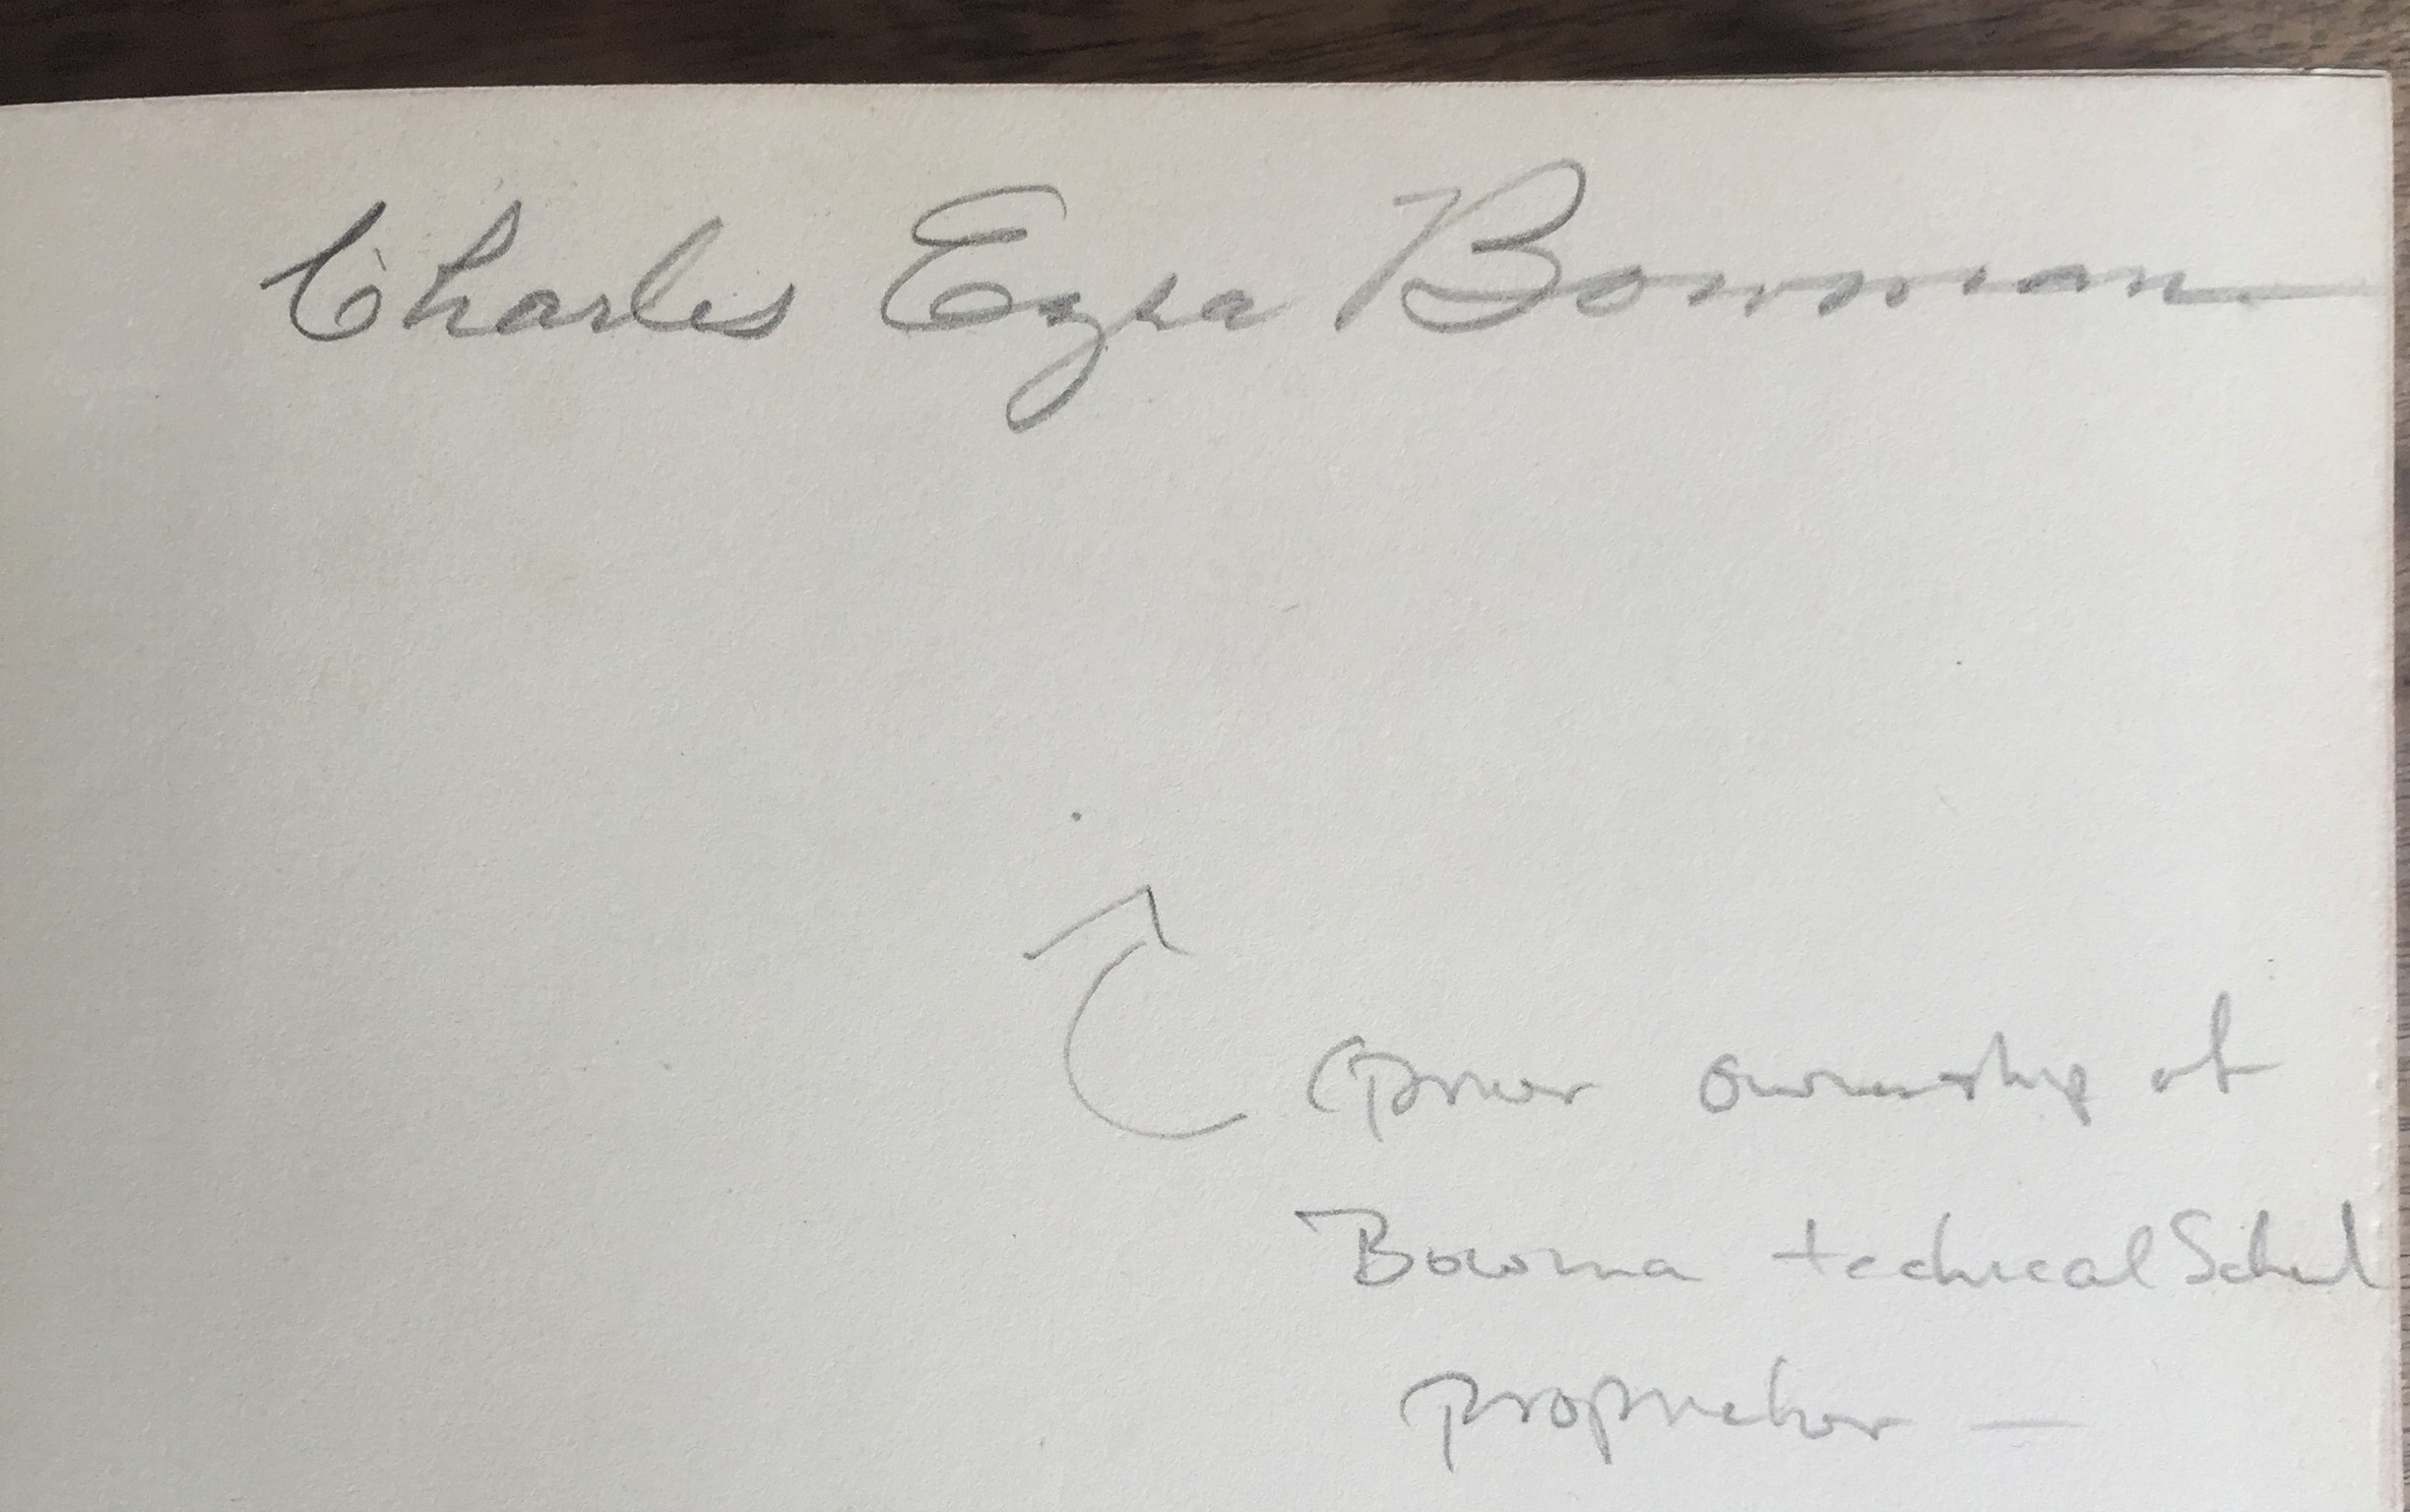 Charles Ezra Bowman
Prior ownership of
Bowma technical School
proprietor —